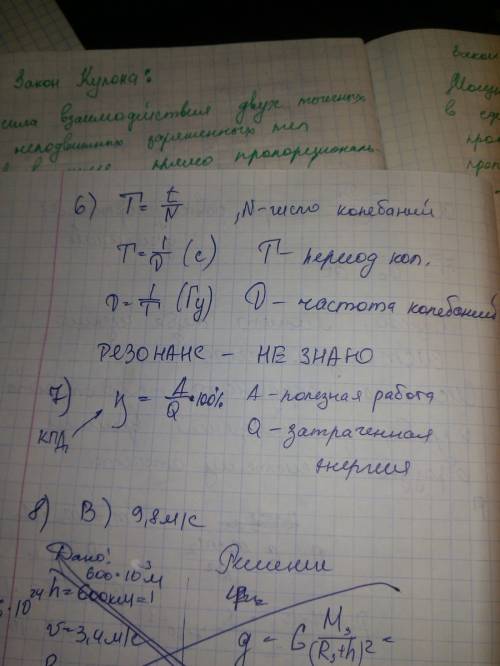 Закон Кулона:
сила взаимодействия двух точечных
неподвижных заряженных тел
прямо пропорциональ-
Закон
6) T = t/N , N - число колебаний
T = 1/ν (с) T - период кол.
ν = 1/T (Гц) ν - частота колебаний
РЕЗОНАНС - НЕ ЗНАЮ
7) η = A/Q · 100% A - полезная работа
КПД Q - затраченная
энергия
8) В) 9,8 м/с
Дано: Решение
600·10³ м
h = 600 км = 1
v = 3,4 м/с g = G M₃/(R₃+h)² =